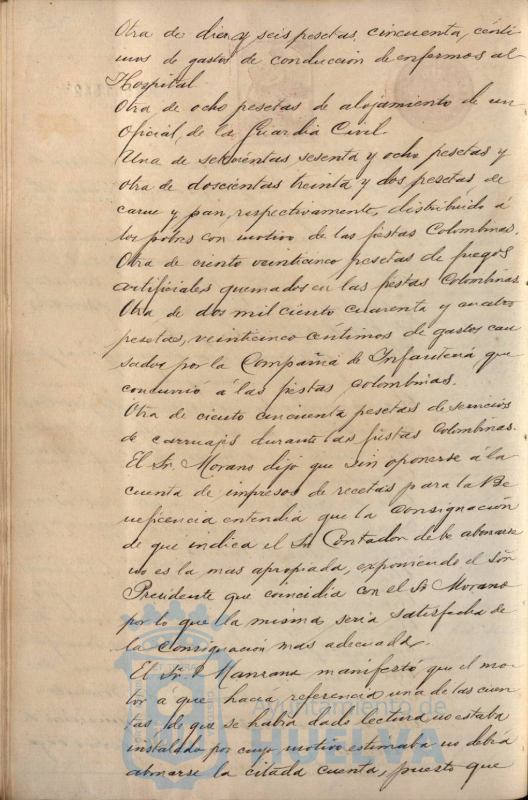 Otra de diez y seis pesetas, cincuenta, cénti
mos de gastos de conducción de enfermos al
Hospital
Otra de ocho pesetas de alojamiento de un
Oficial de la Guardia Civil.
Una de seiscientas sesenta y ocho pesetas y
otra de doscientas treinta y dos pesetas de
carne y pan, respectivamente, distribuido á
los pobres con motivo de las fiestas Colombinas.
Otra de ciento veinticinco pesetas de fuegos
artificiales quemados en las fiestas Colombinas
Otra de dos mil ciento cuarenta y cuatro
pesetas, veinticinco céntimos de gastos cau
sados por la Compañia de Infanteria que
concurrió á las fiestas Colombinas.
Otra de ciento cincuenta pesetas de servicios
de carruajes durante las fiestas Colombinas.
El Sr. Morano dijo que sin oponerse á la
cuenta de impresos de recetas para la Be
neficencia entendia que la consignación
de que indica el Sr Contador debe abonarse
no es la mas apropiada, exponiendo el Señor
Presidente que coincidia con el Sr Morano
por lo que la misma seria satisfecha de
la consignación mas adecuada.
El Sr. Manzano manifestó que el mo
tor á que hacia referencia una de las cuen
tas de que se habia dado lectura no estaba
instalado por cuyo motivo estimaba no debia
abonarse la citada cuenta, puesto que
Ayuntamiento de
HUELVA